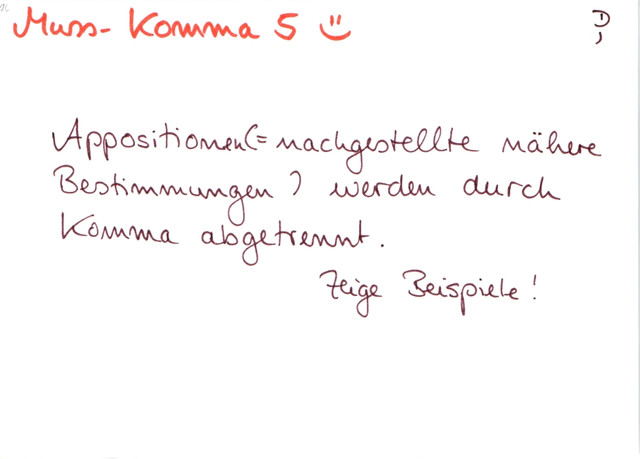 Muss-Komma 5 :)
Appositionen (= nachgestellte nähere
Bestimmungen) werden durch
Komma abgetrennt.
Zeige Beispiele!